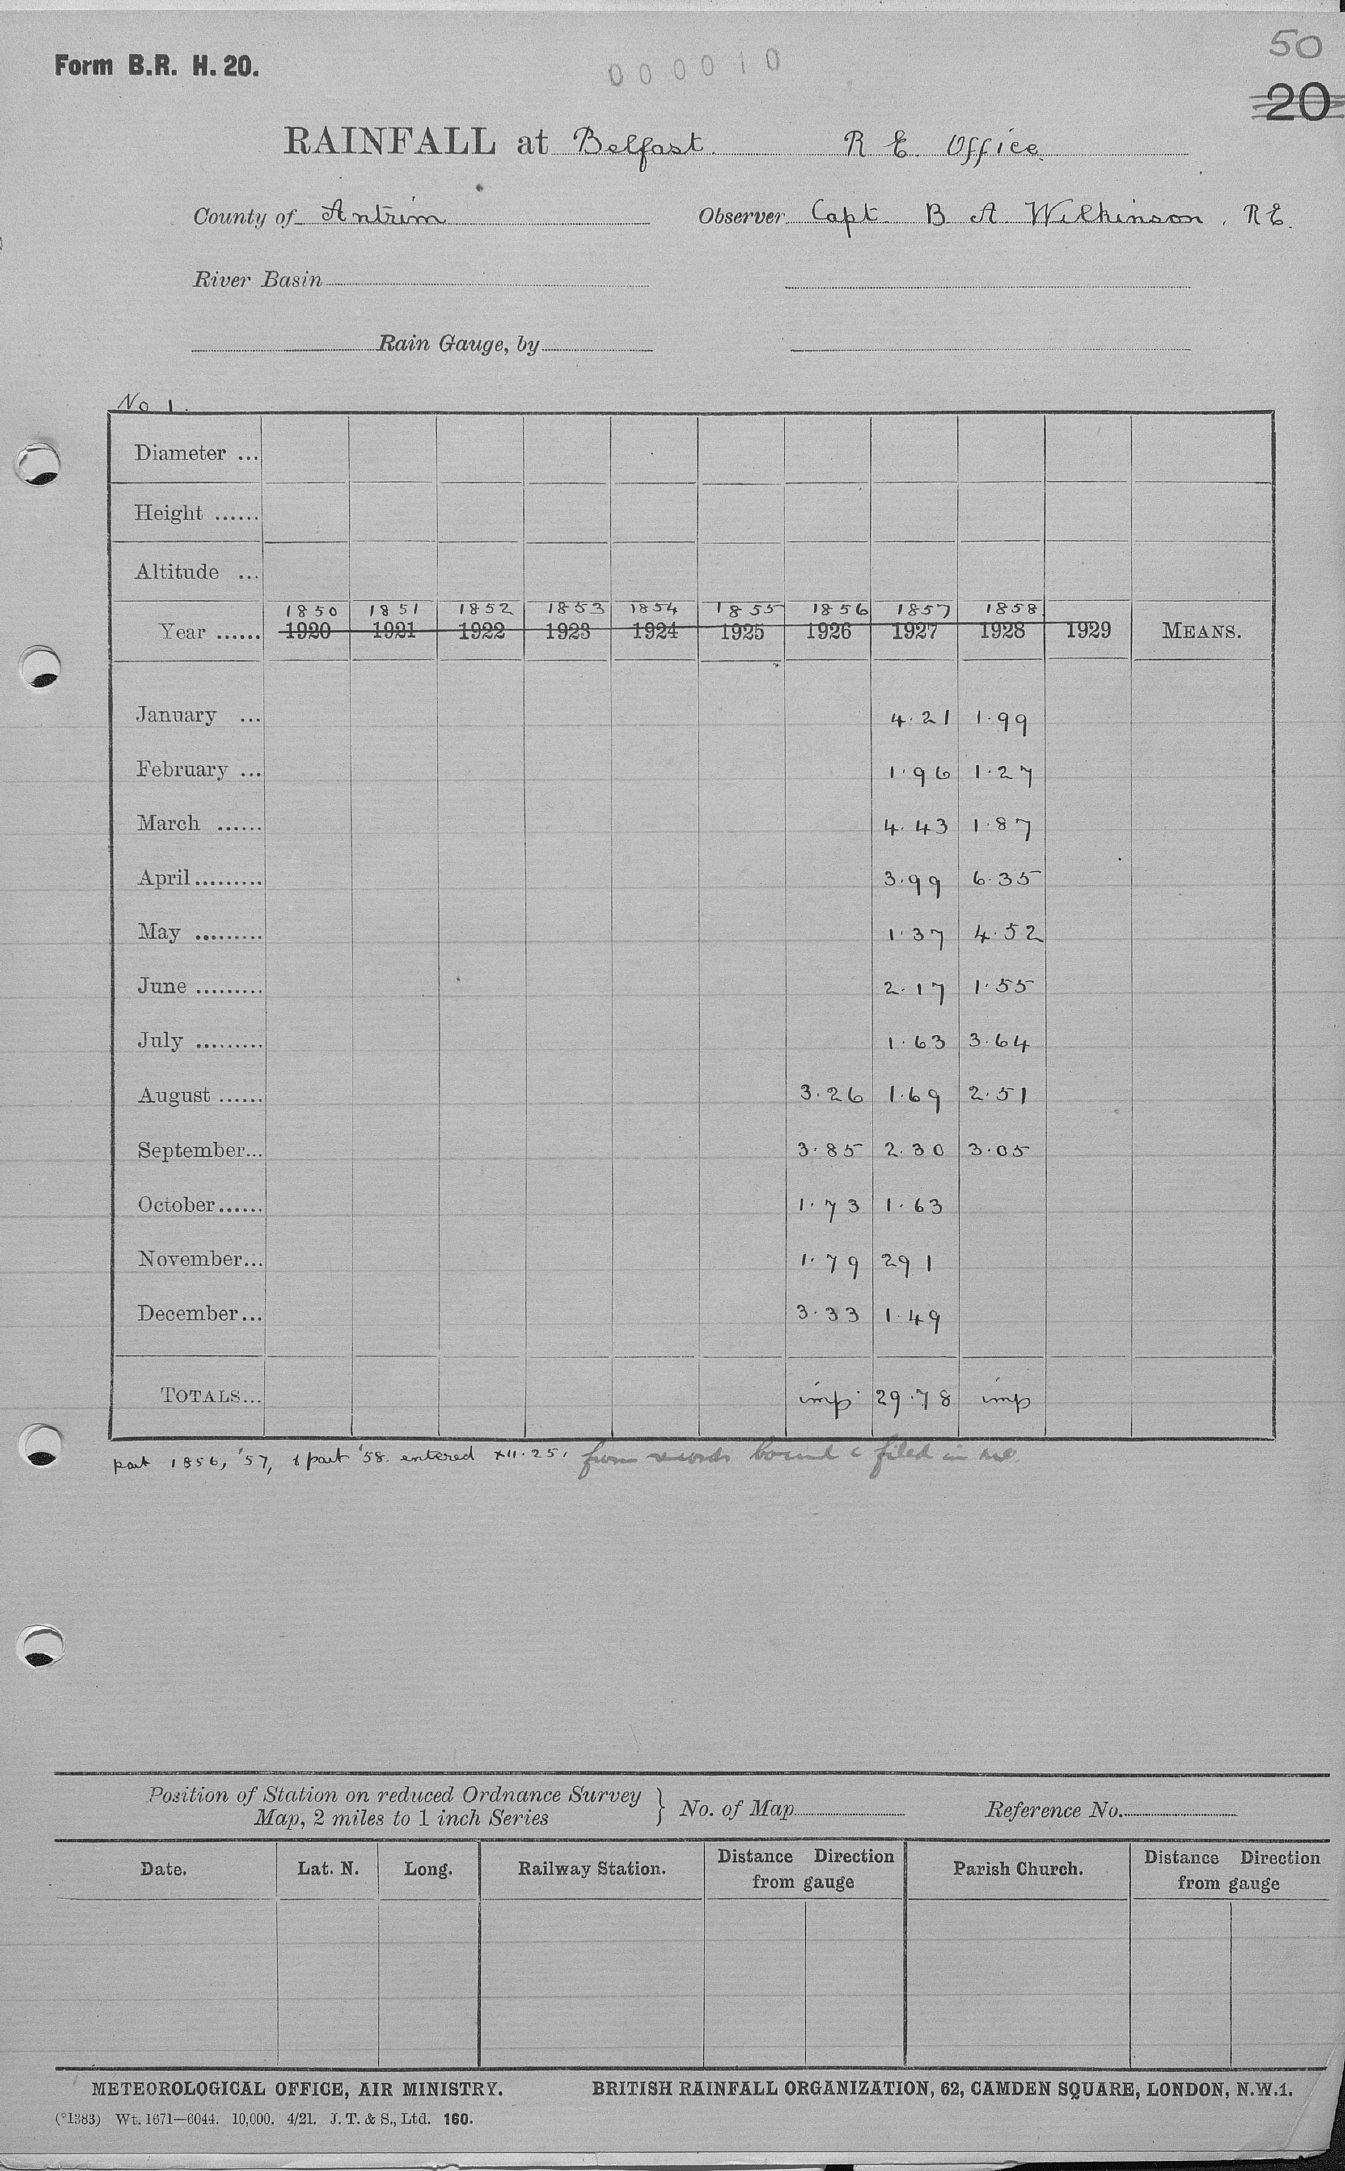 Form B.R. H. 20.
000010
50
20
RAINFALL at Belfast. R E. Office.
County of Antrim
Observer Capt. B A Wilkinson, R E.
River Basin
Rain Gauge, by
No 1.
Diameter ...
Height ......
Altitude ...
1850 1851 1852 1853 1854 1855 1856 1857 1858
Year ...... 1920 1921 1922 1923 1924 1925 1926 1927 1928 1929 MEANS.
January ... 4.21 1.99
February ... 1.96 1.27
March ...... 4.43 1.87
April ......... 3.99 6.35
May ......... 1.37 4.52
June ......... 2.17 1.55
July ......... 1.63 3.64
August ...... 3.26 1.69 2.51
September... 3.85 2.30 3.05
October...... 1.73 1.63
November... 1.79 291
December... 3.33 1.49
TOTALS... imp. 29.78 imp
part 1856, '57, & part '58. entered XII.25. from records bound & filed in
Position of Station on reduced Ordnance Survey
Map, 2 miles to 1 inch Series } No. of Map Reference No.
Date. Lat. N. Long. Railway Station. Distance Direction from gauge Parish Church. Distance Direction from gauge
METEOROLOGICAL OFFICE, AIR MINISTRY. BRITISH RAINFALL ORGANIZATION, 62, CAMDEN SQUARE, LONDON, N.W.1.
(*1383) Wt. 1671—6044. 10,000. 4/21. J. T. & S., Ltd. 160.